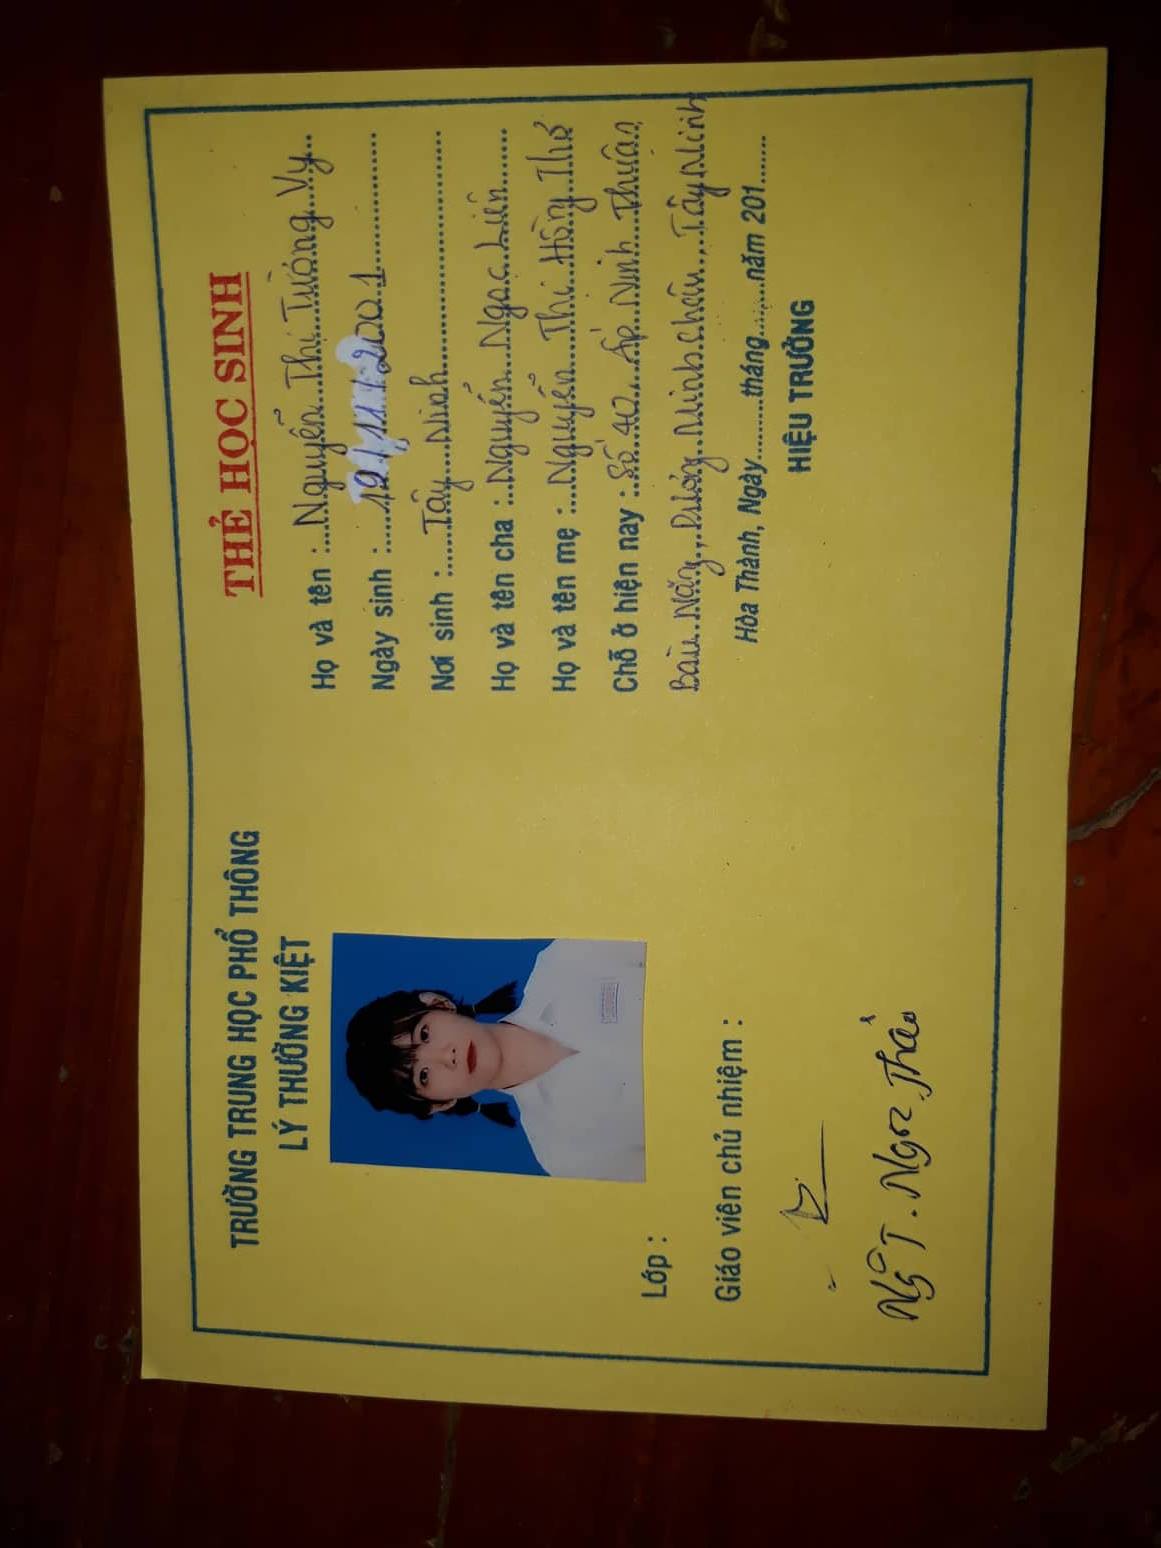 TRƯỜNG TRUNG HỌC PHỔ THÔNG
LÝ THƯỜNG KIỆT
Lớp :
Giáo viên chủ nhiệm :
Ngô T. Ngọc Thảo
THẺ HỌC SINH
Họ và tên : Nguyễn Thị Tường Vy
Ngày sinh : 19/11/2001
Nơi sinh : Tây Ninh
Họ và tên cha : Nguyễn Ngọc Liên
Họ và tên mẹ : Nguyễn Thị Hồng Thơ
Chỗ ở hiện nay : Số 40, Ấp Ninh Thuận,
Bàu Năng, Dương Minh Châu, Tây Ninh
Hòa Thành, Ngày.........tháng.........năm 201......
HIỆU TRƯỞNG